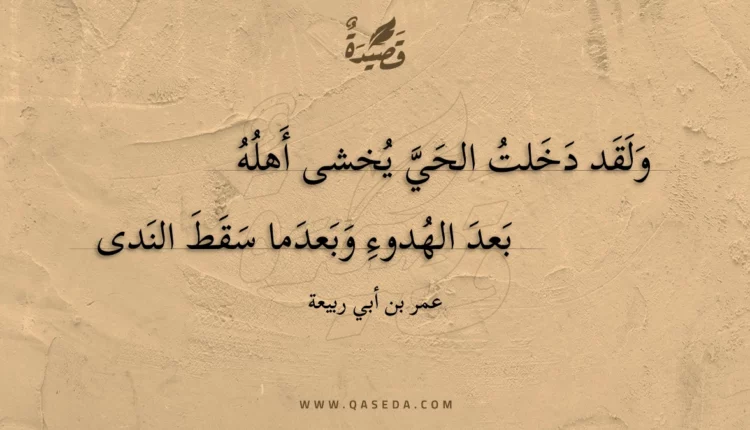 قَصِيدَةٌ
وَلَقَد دَخَلتُ الحَيَّ يُخشى أَهلُهُ
بَعدَ الهُدوءِ وَبَعدَما سَقَطَ النَدى
عمر بن أبي ربيعة
WWW.QASEDA.COM